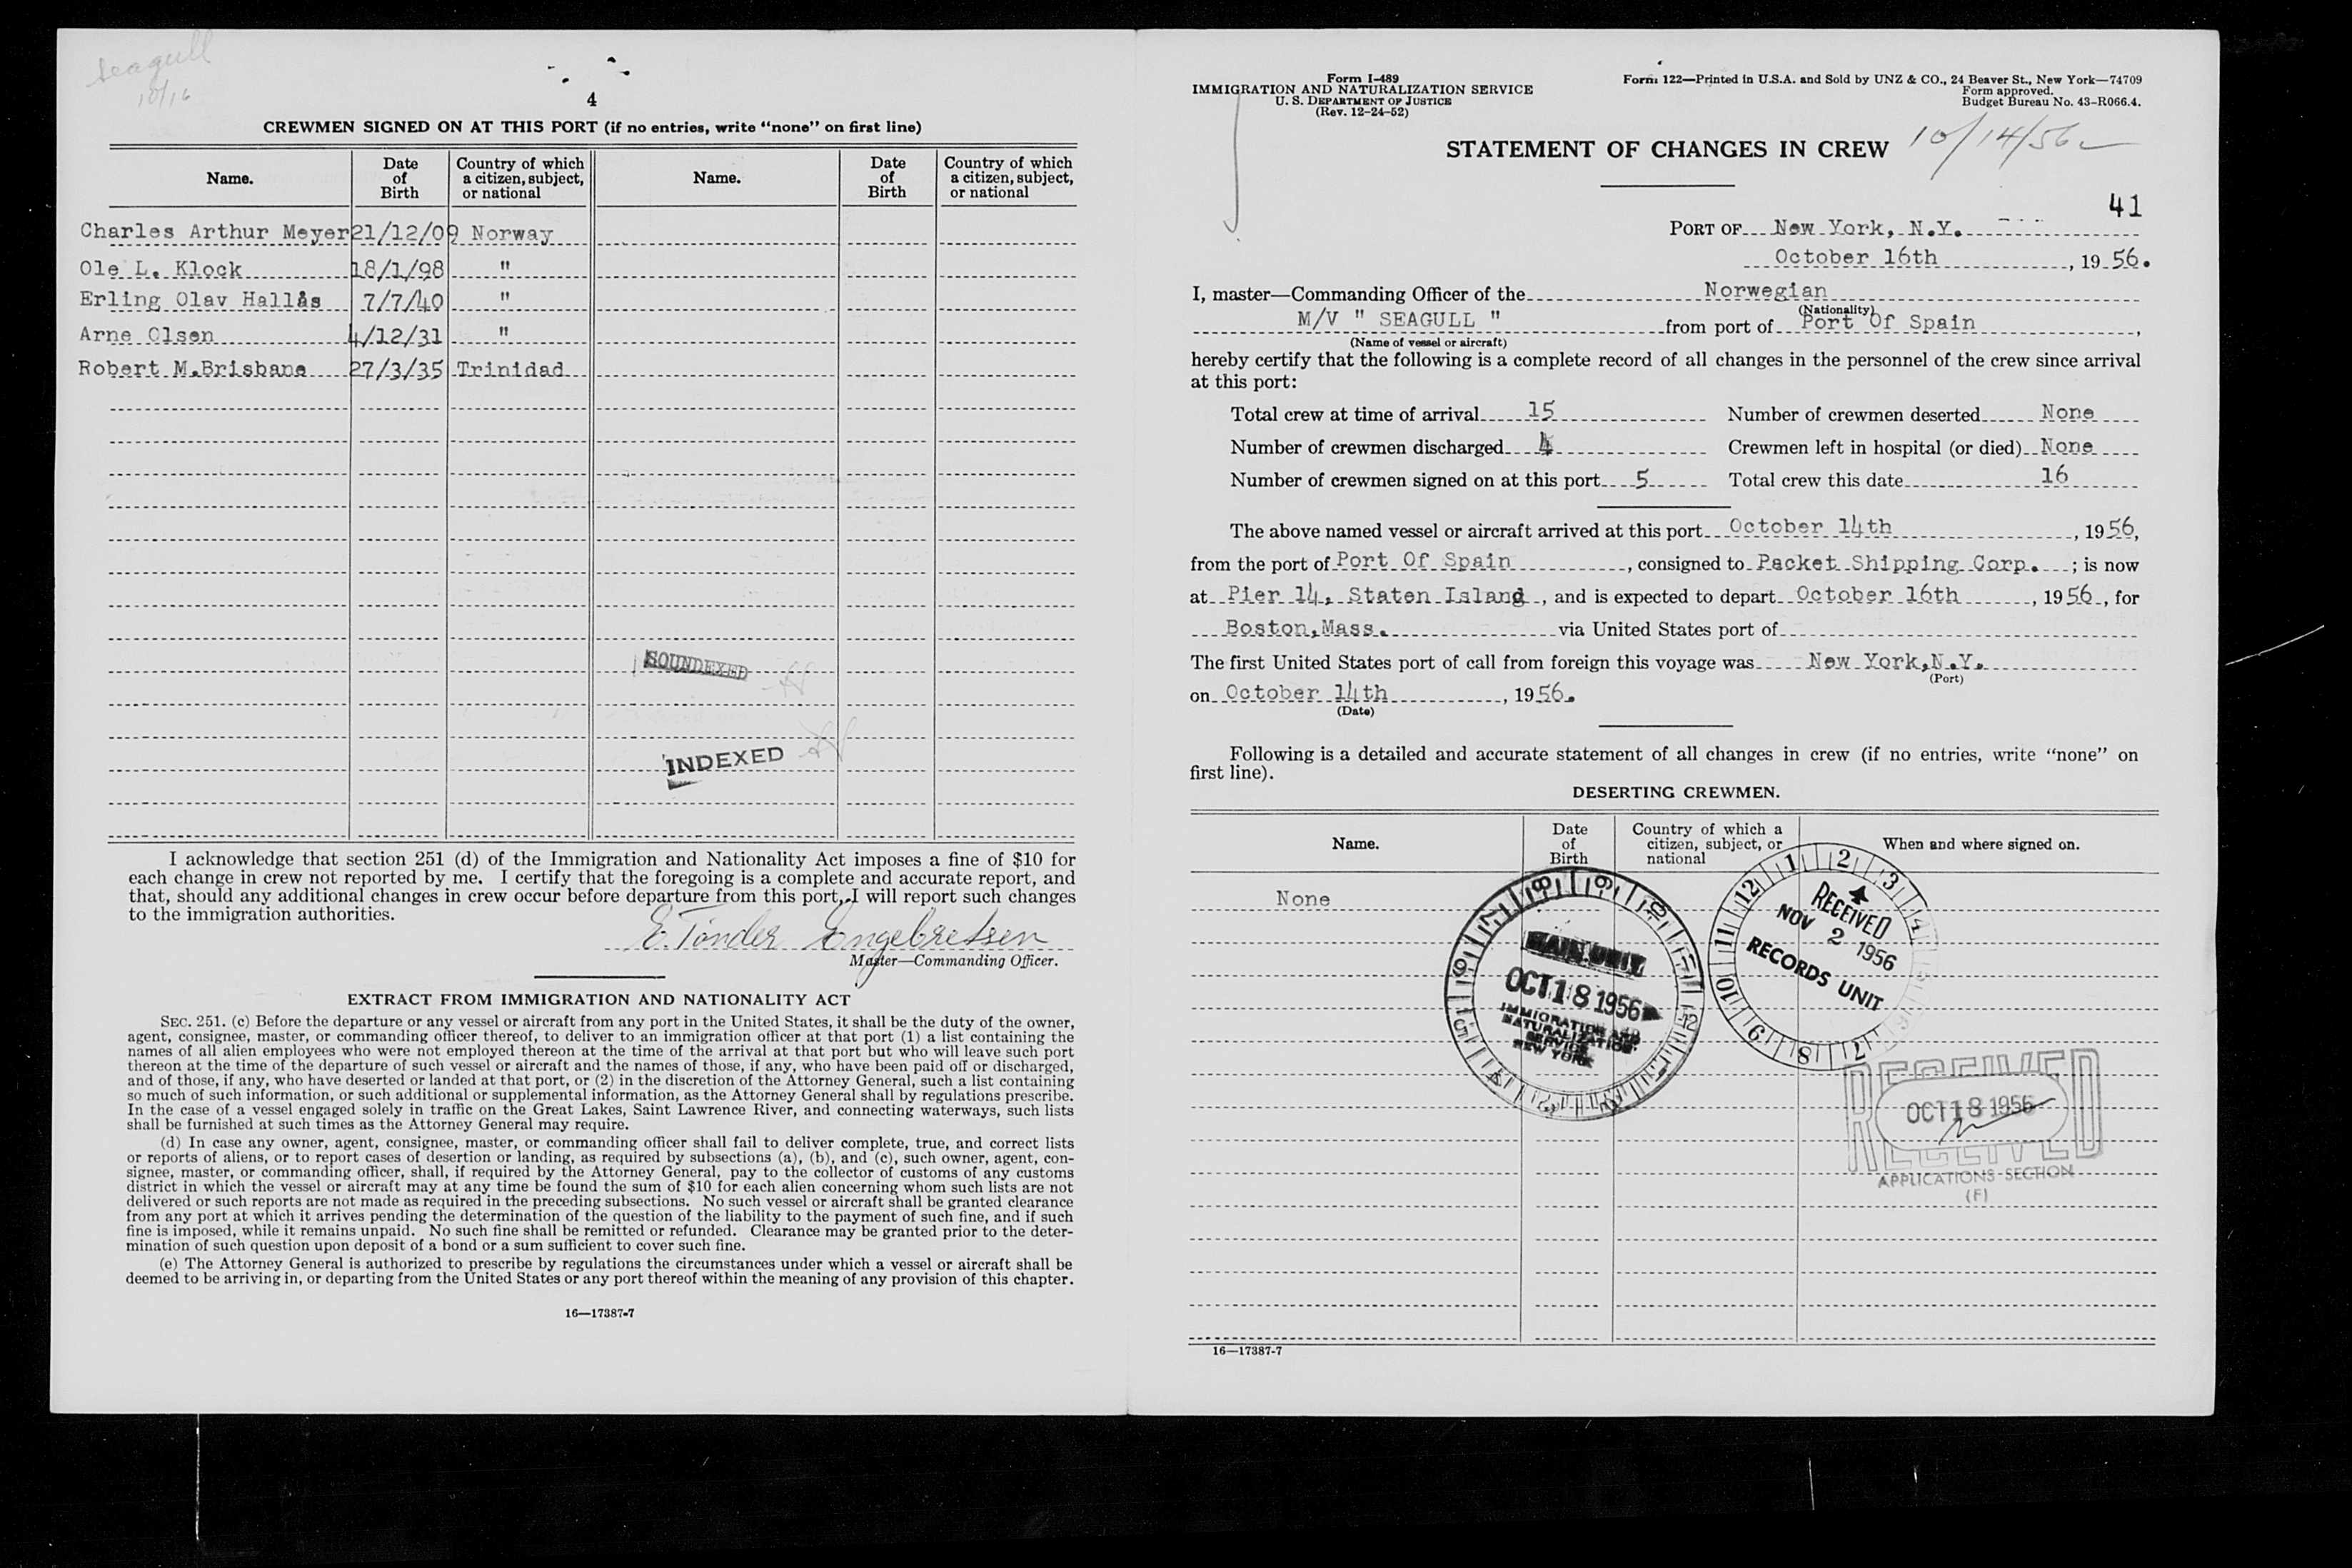 Seagull
10/16
4
CREWMEN SIGNED ON AT THIS PORT (if no entries, write “none” on first line)
Name. Date of Birth Country of which a citizen, subject, or national Name. Date of Birth Country of which a citizen, subject, or national
Charles Arthur Meyer 21/12/09 Norway
Ole L. Klock 18/1/98 "
Erling Olav Hallås 7/7/40 "
Arne Olsen 4/12/31 "
Robert M.Brisbane 27/3/35 Trinidad
SOUNDEXED
INDEXED
I acknowledge that section 251 (d) of the Immigration and Nationality Act imposes a fine of $10 for
each change in crew not reported by me. I certify that the foregoing is a complete and accurate report, and
that, should any additional changes in crew occur before departure from this port, I will report such changes
to the immigration authorities.
E. Tönder Engebretsen
Master—Commanding Officer.
EXTRACT FROM IMMIGRATION AND NATIONALITY ACT
SEC. 251. (c) Before the departure or any vessel or aircraft from any port in the United States, it shall be the duty of the owner,
agent, consignee, master, or commanding officer thereof, to deliver to an immigration officer at that port (1) a list containing the
names of all alien employees who were not employed thereon at the time of the arrival at that port but who will leave such port
thereon at the time of the departure of such vessel or aircraft and the names of those, if any, who have been paid off or discharged,
and of those, if any, who have deserted or landed at that port, or (2) in the discretion of the Attorney General, such a list containing
so much of such information, or such additional or supplemental information, as the Attorney General shall by regulations prescribe.
In the case of a vessel engaged solely in traffic on the Great Lakes, Saint Lawrence River, and connecting waterways, such lists
shall be furnished at such times as the Attorney General may require.
(d) In case any owner, agent, consignee, master, or commanding officer shall fail to deliver complete, true, and correct lists
or reports of aliens, or to report cases of desertion or landing, as required by subsections (a), (b), and (c), such owner, agent, con-
signee, master, or commanding officer, shall, if required by the Attorney General, pay to the collector of customs of any customs
district in which the vessel or aircraft may at any time be found the sum of $10 for each alien concerning whom such lists are not
delivered or such reports are not made as required in the preceding subsections. No such vessel or aircraft shall be granted clearance
from any port at which it arrives pending the determination of the question of the liability to the payment of such fine, and if such
fine is imposed, while it remains unpaid. No such fine shall be remitted or refunded. Clearance may be granted prior to the deter-
mination of such question upon deposit of a bond or a sum sufficient to cover such fine.
(e) The Attorney General is authorized to prescribe by regulations the circumstances under which a vessel or aircraft shall be
deemed to be arriving in, or departing from the United States or any port thereof within the meaning of any provision of this chapter.
16—17387-7
Form I-489
IMMIGRATION AND NATURALIZATION SERVICE
U. S. DEPARTMENT OF JUSTICE
(Rev. 12-24-52)
Form 122—Printed in U.S.A. and Sold by UNZ & CO., 24 Beaver St., New York—74709
Form approved.
Budget Bureau No. 43-R066.4.
STATEMENT OF CHANGES IN CREW 10/14/56
41
PORT OF New York, N.Y.
October 16th, 19 56.
I, master—Commanding Officer of the Norwegian
(Nationality)
M/V " SEAGULL " from port of Port Of Spain,
(Name of vessel or aircraft)
hereby certify that the following is a complete record of all changes in the personnel of the crew since arrival
at this port:
Total crew at time of arrival 15 Number of crewmen deserted None
Number of crewmen discharged 4 Crewmen left in hospital (or died) None
Number of crewmen signed on at this port 5 Total crew this date 16
The above named vessel or aircraft arrived at this port October 14th, 19 56,
from the port of Port Of Spain, consigned to Packet Shipping Corp. ; is now
at Pier 14, Staten Island, and is expected to depart October 16th, 19 56, for
Boston,Mass. via United States port of
The first United States port of call from foreign this voyage was New York,N.Y.
(Port)
on October 14th, 19 56.
(Date)
Following is a detailed and accurate statement of all changes in crew (if no entries, write “none” on
first line).
DESERTING CREWMEN.
Name. Date of Birth Country of which a citizen, subject, or national When and where signed on.
None
MAIN UNIT
OCT 18 1956
IMMIGRATION AND
NATURALIZATION
SERVICE
NEW YORK
RECEIVED
NOV 2 1956
RECORDS UNIT
RECEIVED
OCT 18 1956
RECEIVED
APPLICATIONS SECTION
(F)
16—17387-7